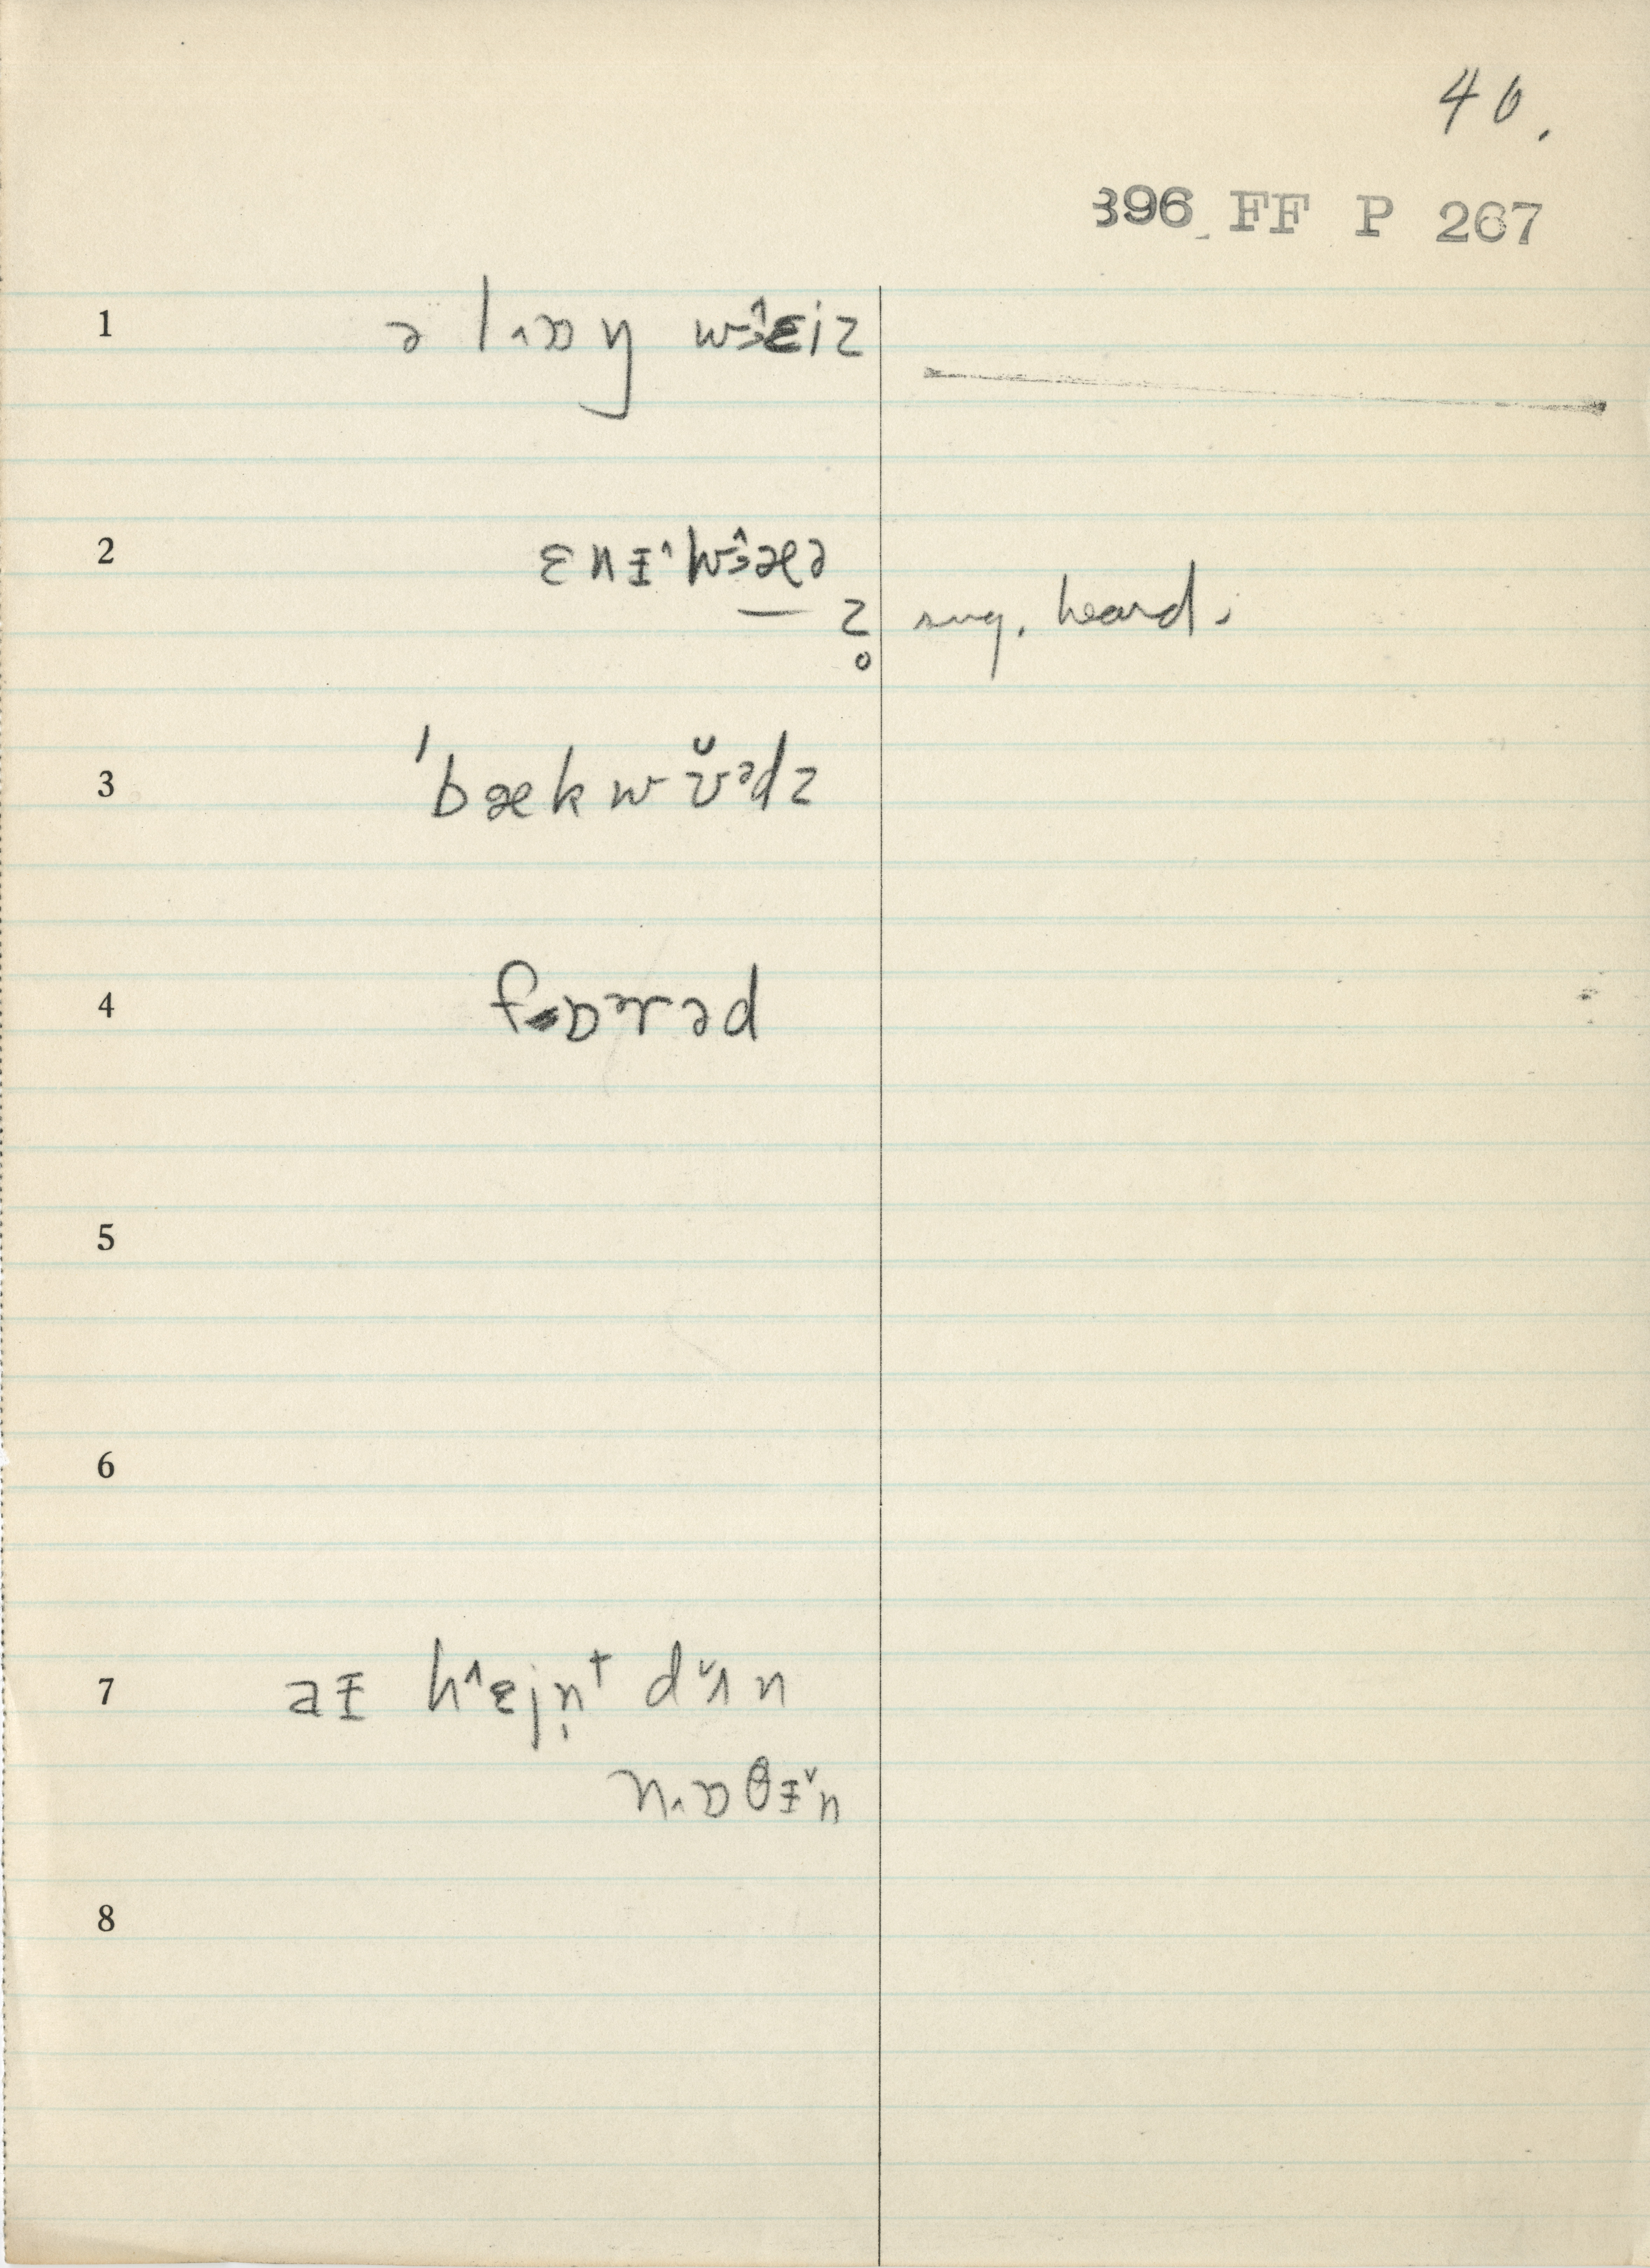 40.
396 FF P 267
1 ə l ˰ɒ ŋ w ɜ̂ ɛ i z
2 ɛ n ɪ ˄ w ɜ̂ æ ə
z̥ sug. heard.
3 ˈb æ k w ʊ̆ ᵊ d z
4 f ɒ ᵊ r ə d
5
6
7 a ɪ h ˄ ɛ j n̩ ᵗ d ˅ ʌ n
n ˰ ɒ θ ɪ ˅ n
8